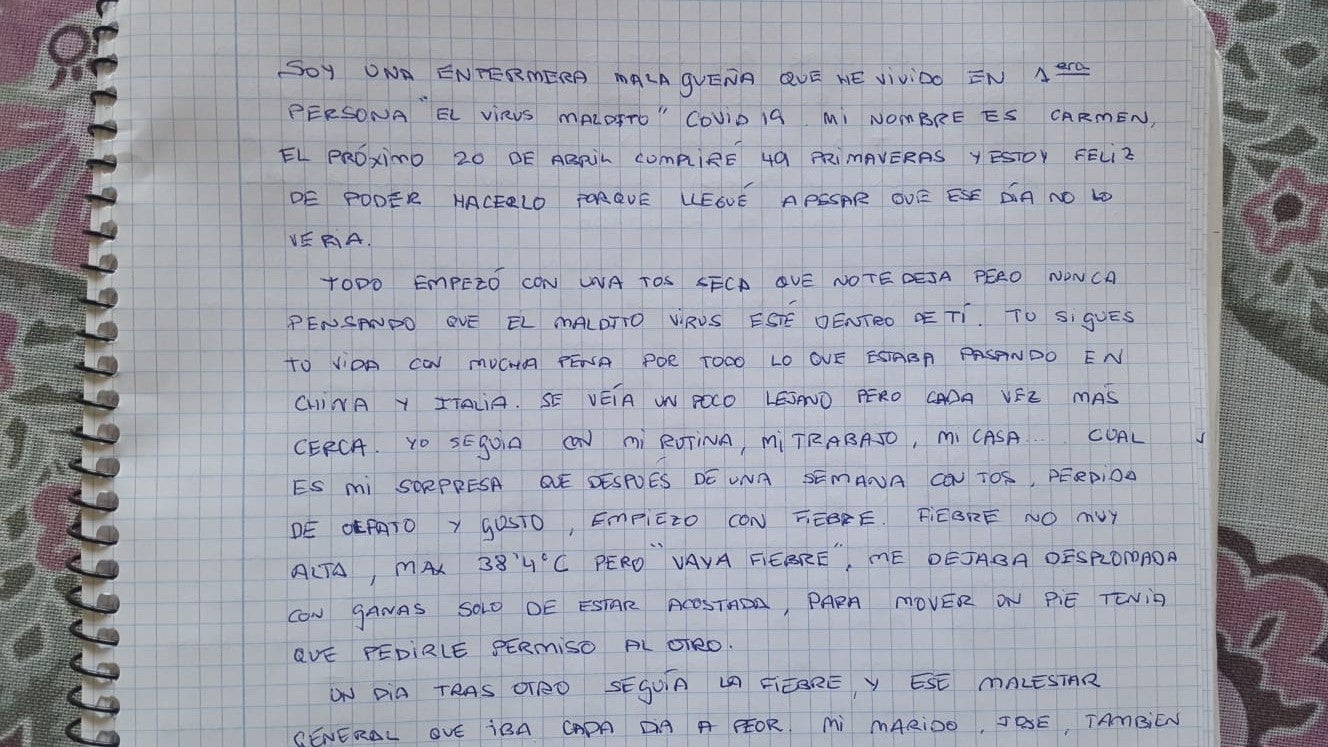 SOY UNA ENFERMERA MALAGUEÑA QUE HE VIVIDO EN 1era
PERSONA "EL VIRUS MALDITO" COVID 19. MI NOMBRE ES CARMEN,
EL PRÓXIMO 20 DE ABRIL CUMPLIRÉ 49 PRIMAVERAS Y ESTOY FELIZ
DE PODER HACERLO PORQUE LLEGUÉ A PESAR QUE ESE DÍA NO LO
VERIA.
TODO EMPEZÓ CON UNA TOS SECA QUE NO TE DEJA PERO NUNCA
PENSANDO QUE EL MALDITO VIRUS ESTÉ DENTRO DE TÍ. TU SIGUES
TU VIDA CON MUCHA PENA POR TODO LO QUE ESTABA PASANDO EN
CHINA Y ITALIA. SE VEÍA UN POCO LEJANO PERO CADA VEZ MAS
CERCA. YO SEGUIA CON MI RUTINA, MI TRABAJO, MI CASA... CUAL
ES MI SORPRESA QUE DESPUÉS DE UNA SEMANA CON TOS, PERDIDA
DE OLFATO Y GUSTO, EMPIEZO CON FIEBRE. FIEBRE NO MUY
ALTA, MAX 38'4°C PERO "VAYA FIEBRE", ME DEJABA DESPLOMADA
CON GANAS SOLO DE ESTAR ACOSTADA, PARA MOVER UN PIE TENIA
QUE PEDIRLE PERMISO AL OTRO.
UN DIA TRAS OTRO SEGUÍA LA FIEBRE, Y ESE MALESTAR
GENERAL QUE IBA CADA DIA A PEOR. MI MARIDO, JOSE, TAMBIEN